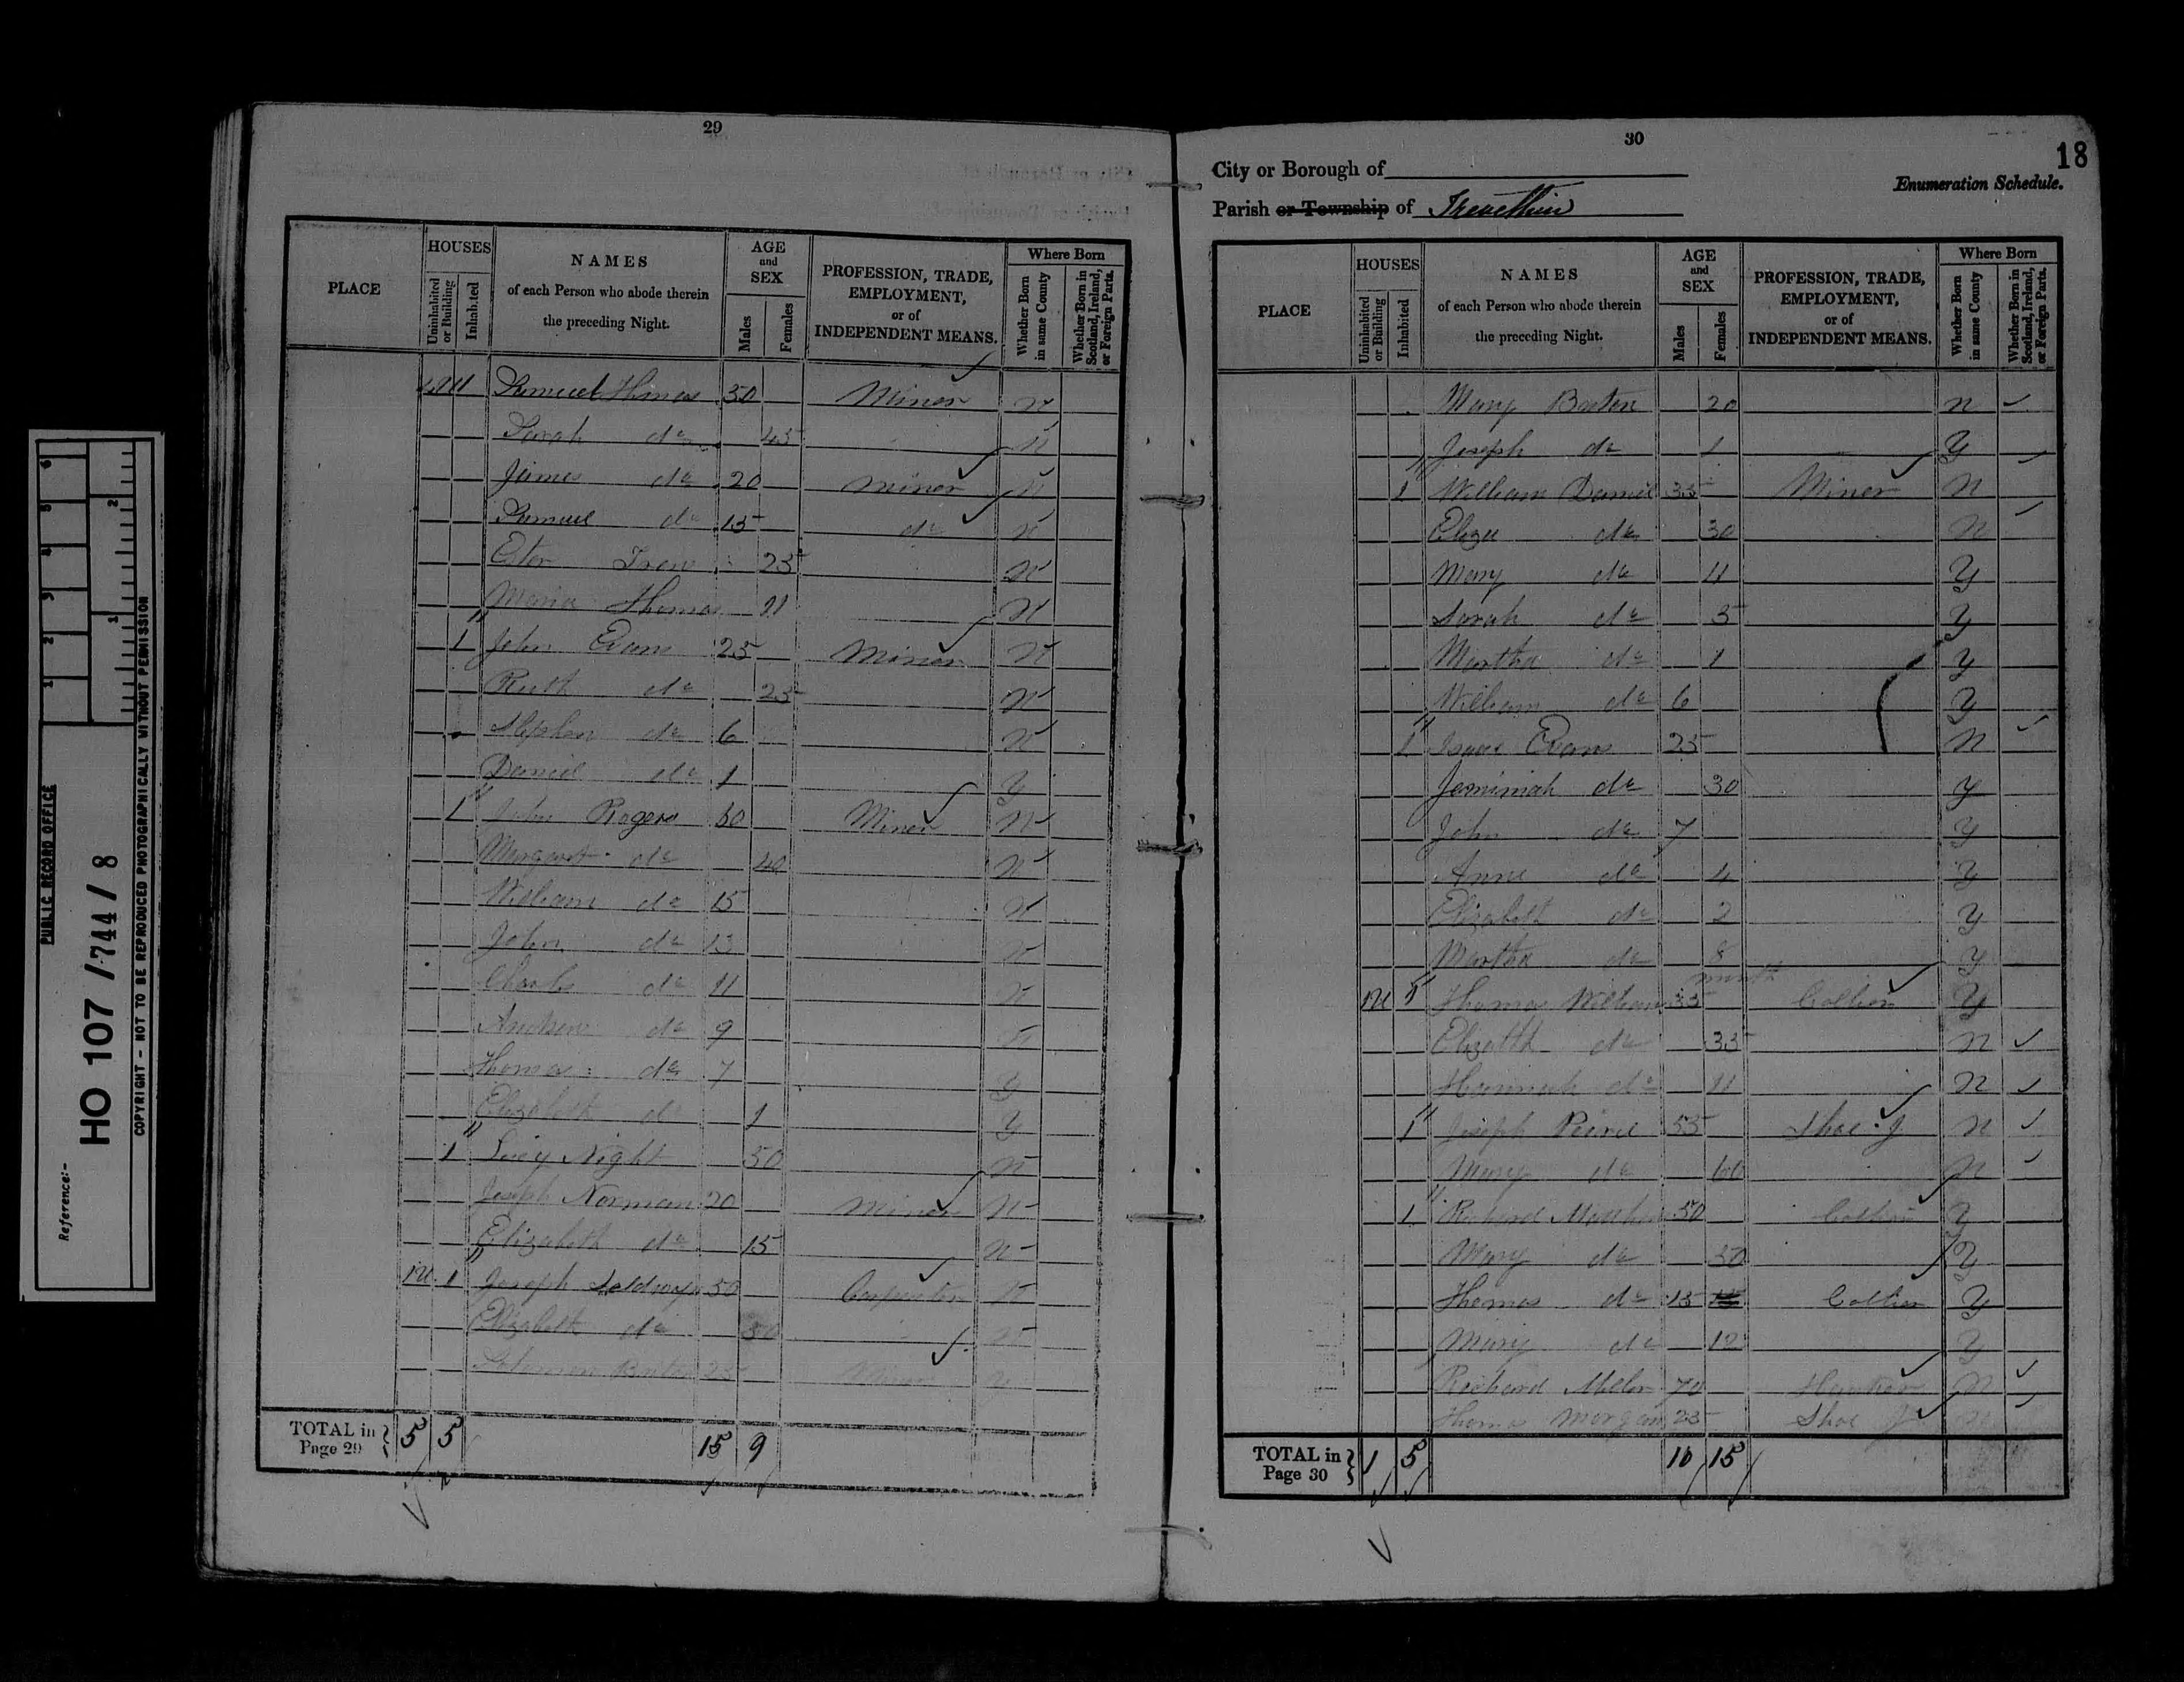 PUBLIC RECORD OFFICE
Reference:-
HO 107 / 744 / 8
COPYRIGHT - NOT TO BE REPRODUCED PHOTOGRAPHICALLY WITHOUT PERMISSION
1 2 3 4 5 6
1 2
29
PLACE
HOUSES
Uninhabited or Building
Inhabited
NAMES
of each Person who abode therein
the preceding Night.
AGE and SEX
Males
Females
PROFESSION, TRADE, EMPLOYMENT, or of INDEPENDENT MEANS.
Where Born
Whether Born in same County
Whether Born in Scotland, Ireland, or Foreign Parts.
Samuel Thomas 50 Miner N
Sarah do 45 N
James do 20 Miner N
Samuel do 15 do N
25 N
Maria Thomas 11 N
1 John Evans 25 Miner N
Ruth do 25 N
Stephen do 6 N
Daniel do 1 Y
1 John Rogers Miner N
Margaret do 40 N
William do 15 N
John do 13 N
Charles do 11 N
Andrew do 9 N
Thomas do 7 Y
Elizabeth do 1 Y
1 Lucy Night 50 N
Joseph Norman 20 Miner N
Elizabeth do 15 N
1U 1 Joseph 50 Carpenter N
Elizabeth do 50 N
25 Miner
TOTAL in Page 29 } 5 5 15 9
30
18
City or Borough of
Enumeration Schedule.
Parish or Township of Trevethin
PLACE
HOUSES
Uninhabited or Building
Inhabited
NAMES
of each Person who abode therein
the preceding Night.
AGE and SEX
Males
Females
PROFESSION, TRADE, EMPLOYMENT, or of INDEPENDENT MEANS.
Where Born
Whether Born in same County
Whether Born in Scotland, Ireland, or Foreign Parts.
Mary 20 N
Joseph do 1 Y
1 William Daniel 35 Miner N
Eliza do 30 N
Mary do 11 Y
Sarah do 5 Y
Martha do 1 Y
William do 6 Y
1 Isaac Evans 25 N
Jemimiah do 30 Y
John do 7 Y
Anne do 4 Y
Elizabeth do 2 Y
Martha do 8 month Y
1U 1 Thomas William 35 Collier Y
do 35 N
Hannah do 11 N
1 Joseph Peirce 55 Shoe J N
Mary do 60 N
1 Richard 50 Collier Y
Mary do 50 Y
Thomas do 15 Collier Y
Mary do 12 Y
Richard 70 Hawker N
Thomas Morgan 25 Shoe J N
TOTAL in Page 30 } 1 5 10 15